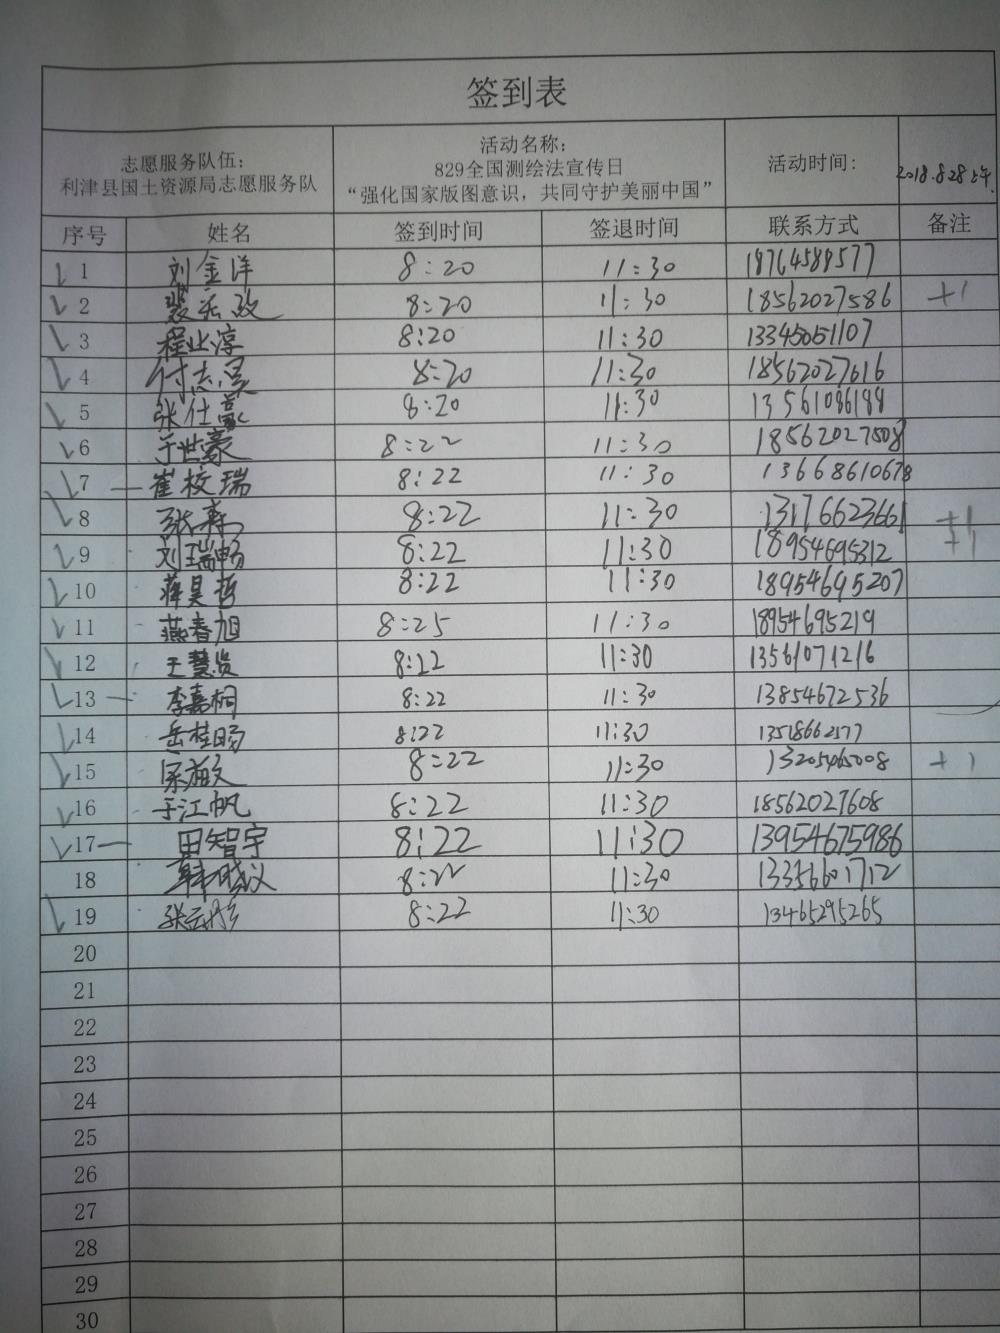 签到表
志愿服务队伍：
利津县国土资源局志愿服务队
活动名称：
829全国测绘法宣传日
“强化国家版图意识，共同守护美丽中国”
活动时间：
2018.8.28上午
序号 姓名 签到时间 签退时间 联系方式 备注
1 刘金洋 8:20 11:30 18764589577
2 8:20 11:30 18562027586 +1
3 程业淳 8:20 11:30 13345051107
4 付志昊 8:20 11:30 18562027616
5 张仕豪 8:20 11:30
6 于世豪 8:22 11:30 18562027508
7 崔校瑞 8:22 11:30 13668610678
8 8:22 11:30 13176623661 +1
9 刘瑞畅 8:22 11:30 18954695312 +1
10 蒋昊哲 8:22 11:30 18954695207
11 燕春旭 8:25 11:30 18954695219
12 王慧贤 8:22 11:30 13561071216
13 李嘉桐 8:22 11:30 13854672536
14 岳桂旸 8:22 11:30
15 8:22 11:30 13205465008 +1
16 于江帆 8:22 11:30 18562027608
17 田智宇 8:22 11:30 13954675986
18 8:22 11:30 13356601712
19 8:22 11:30 13465295265
20
21
22
23
24
25
26
27
28
29
30